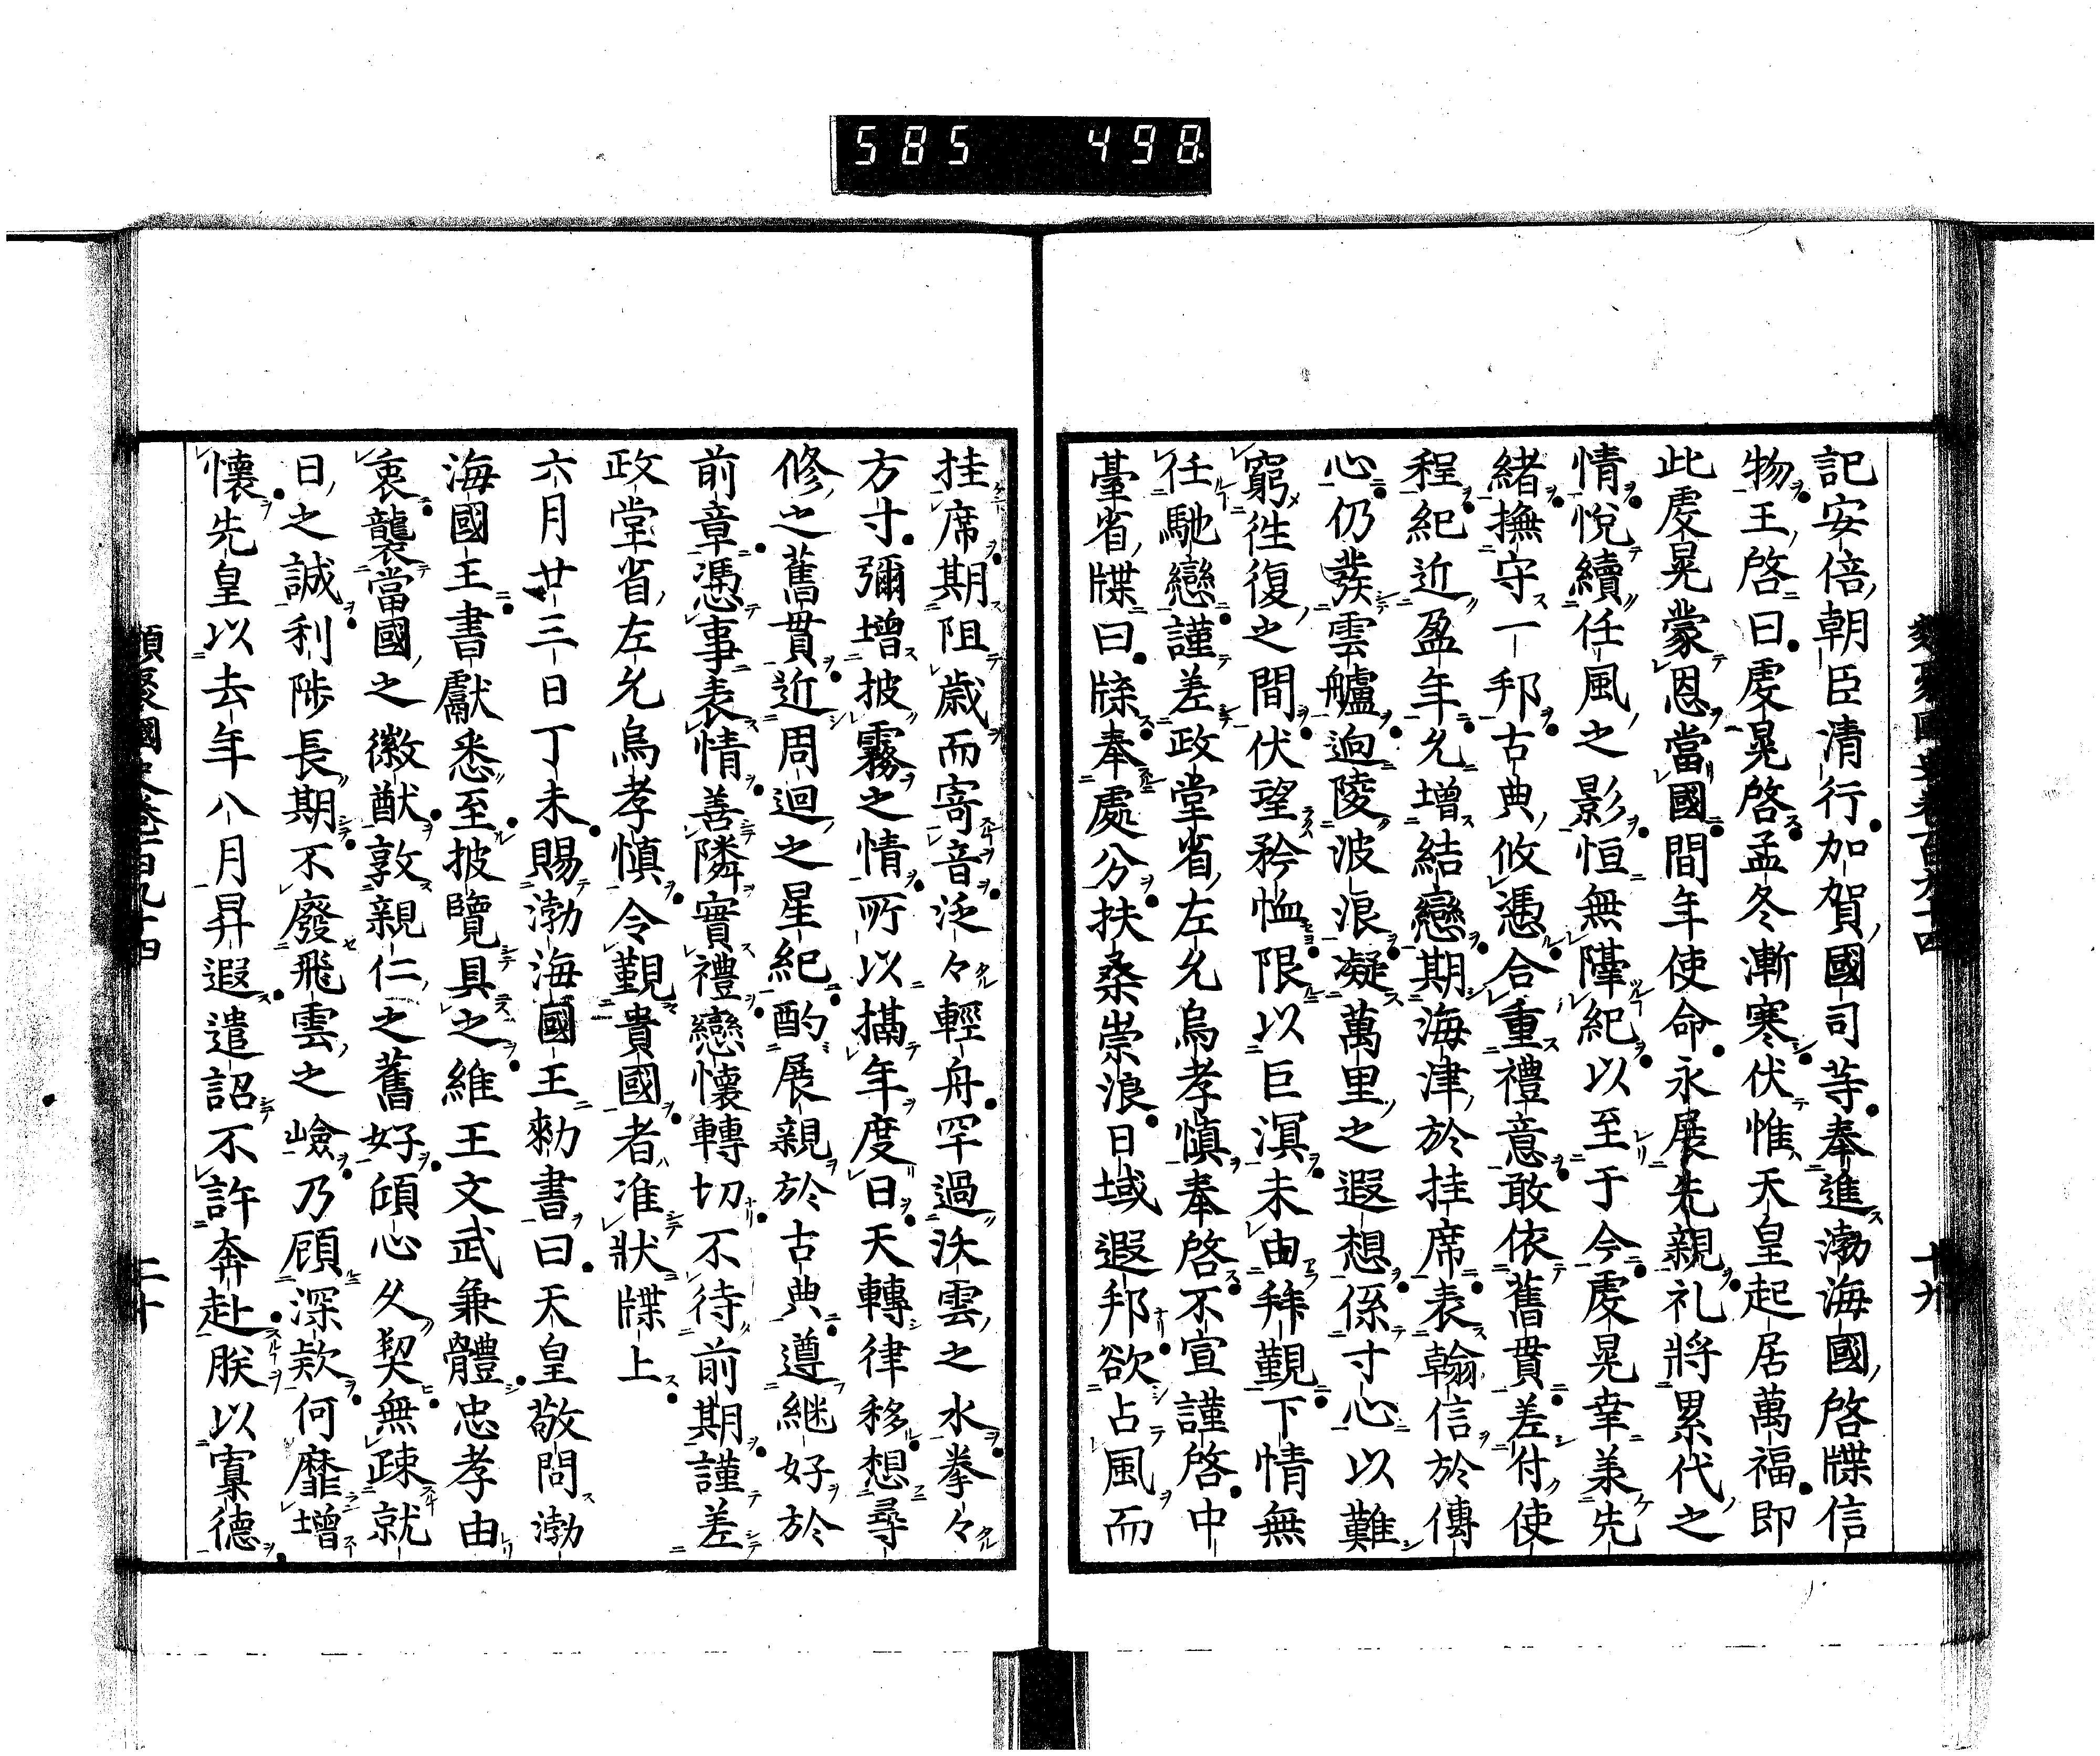 585 498
記安倍朝臣清行加賀國司等奉進渤海國啓牒信
物王啓曰虔晃啓孟冬漸寒伏惟天皇起居萬福即
此虔晃蒙恩當國間年使命永展先親礼將累代之
情悅續任風之影恒無隟紀以至于今虔晃幸兼先
緒撫守一邦古典攸憑合重禮意敢依舊貫差付使
程紀近盈年允增結戀期海津於挂席表翰信於傳
心仍發雲艫逈陵波浪凝萬里之遐想係寸心以難
窮往復之間伏望矜恤限以巨溟未由拜覲下情無
任馳戀謹差政堂省左允烏孝慎奉啓不宣謹啓中
臺省牒曰牒奉處分扶桑崇浪日域遐邦欲占風而
挂席期阻歲而寄音泛々輕舟罕過沃雲之水拳々
方寸彌增披霧之情所以擒年度日天轉律移想尋
修之舊貫近周迴之星紀酌展親於古典遵継好於
前章憑事表情善隣實禮戀懷轉切不待前期謹差
政堂省左允烏孝慎令覲貴國者准狀牒上
六月廿三日丁未賜渤海國王勑書曰天皇敬問渤
海國王書獻悉至披覽具之維王文武兼體忠孝由
衷襲當國之徽猷敦親仁之舊好傾心久契無疎就
日之誠利陟長期不廢飛雲之嶮乃顧深欵何靡增
懷先皇以去年八月昇遐遣詔不許奔赴朕以寡德
類聚國史卷百九十四 十九
類聚國史卷百九十四 二十